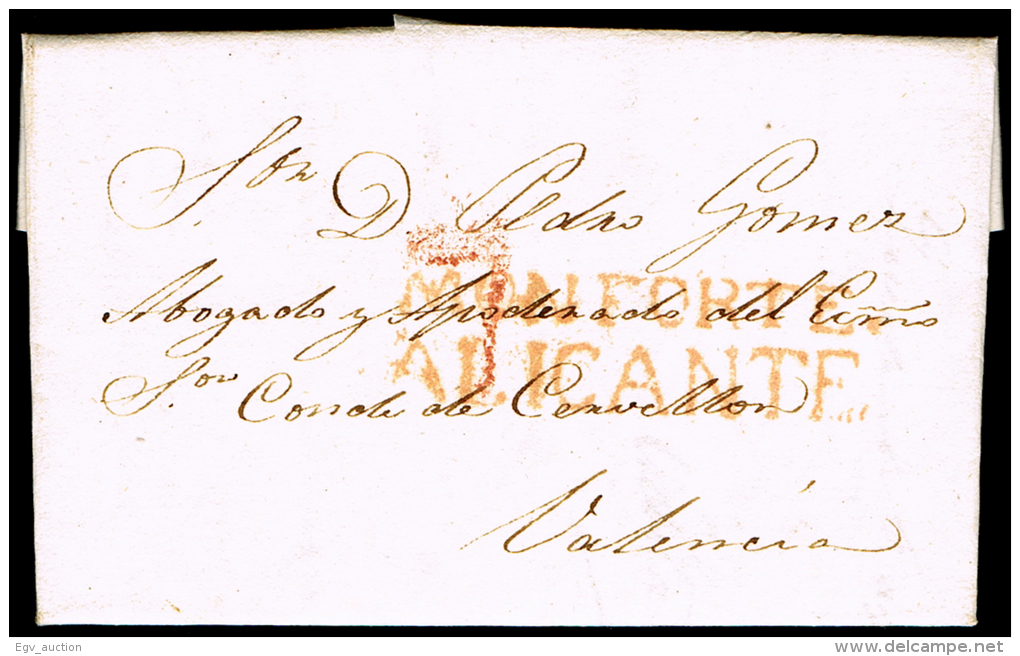 S.or D. Pedro Gomez
Abogado y Apoderado del Exmo
S.or Conde de Cervellon
Valencia
MONFORTE.
ALICANTE.
7
Egv_auction
www.delcampe.net